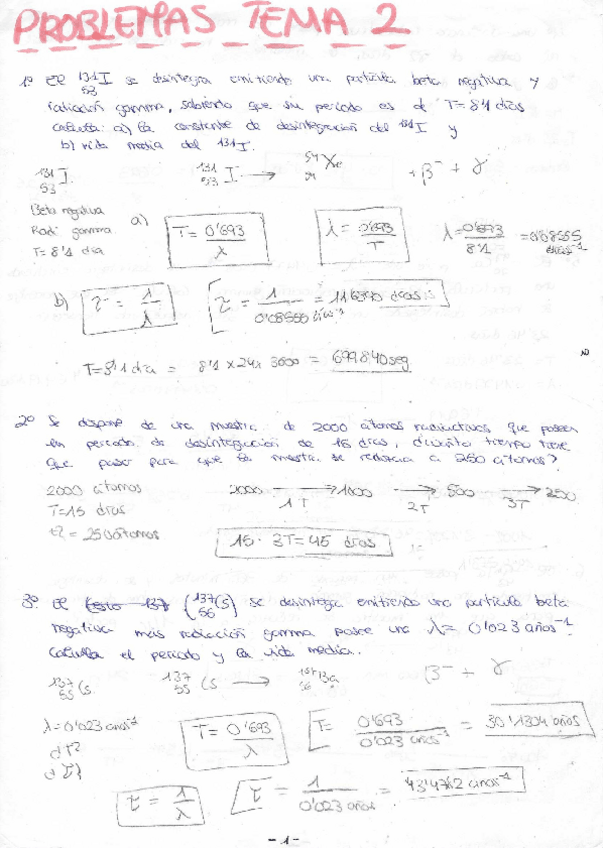 PROBLEMAS TEMA 2
1º El 131 53 I se desintegra emitiendo una partícula beta negativa y
radiación gamma, sabiendo que su periodo es de T=8'1 días
calcula: a) la constante de desintegración del 131I y
b) vida media del 131I.
131 53 I 131 53 I → 54 Xe + β⁻ + γ
Beta negativa
Radi gamma
T= 8'1 día
a) T = 0'693 / λ λ = 0'693 / T λ = 0'693 / 8'1 = 0'08555 días⁻¹
b) τ = 1 / λ τ = 1 / 0'08555 días⁻¹ = días
T=8'1 día = 8'1 x 24 x 3600 = 699.840 seg
2º Se dispone de una muestra de 2000 átomos radiactivos que poseen
un periodo de desintegración de 15 días, ¿cuánto tiempo tiene
que pasar para que la muestra se reduzca a 250 átomos?
2000 átomos 2000 → 1000 → 500 → 250
1T 2T 3T
T=15 días
= 250 átomos
15 · 3T = 45 días
3º El (137 56 Cs) se desintega emitiendo una partícula beta
negativa más radiación gamma posee una λ= 0'023 años⁻¹
Calcula el periodo y la vida media.
137 55 Cs 137 55 Cs → 137 56 Ba β⁻ + γ
λ = 0'023 años⁻¹
¿T?
¿τ?
T = 0'693 / λ T = 0'693 / 0'023 años⁻¹ = 30'1304 años
τ = 1 / λ τ = 1 / 0'023 años = 43'4782 años⁻¹
- 1 -